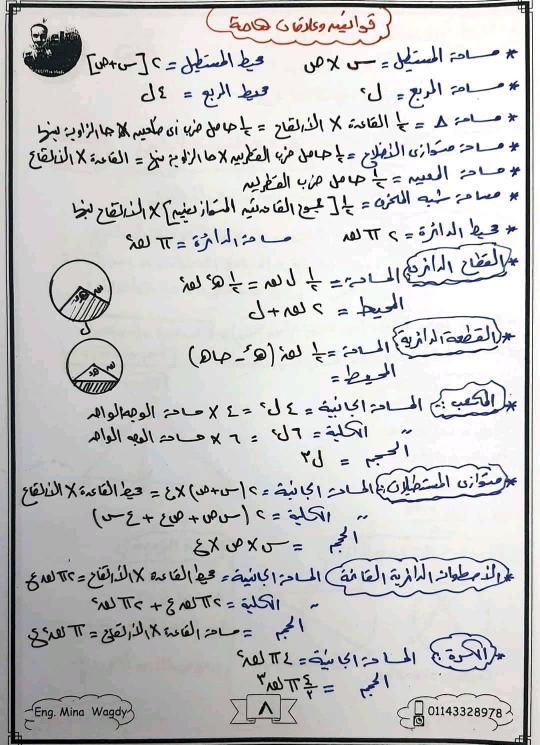 قوانين وعلاقات هامة
* مساحة المستطيل = س × ص    محيط المستطيل = ٢ [س + ص]
* مساحة المربع = ل٢    محيط المربع = ٤ ل
* مساحة Δ = ١/٢ القاعدة × الارتفاع = ١/٢ حاصل ضرب أى ضلعين × حا الزاوية بينهما
* مساحة متوازى الأضلاع = ١/٢ حاصل ضرب القطرين × حا الزاوية بينهما = القاعدة × الارتفاع
* مساحة المعين = ١/٢ حاصل ضرب القطرين
* مساحة شبه المنحرف = ١/٢ [مجموع القاعدتين المتوازيتين] × الارتفاع بينهما
* محيط الدائرة = ٢ π نق    مساحة الدائرة = π نق٢
* القطاع الدائرى المساحة = ١/٢ ل نق = ١/٢ هـ نق٢
المحيط = ٢ نق + ل
* القطعة الدائرية المساحة = ١/٢ نق٢ (هـ - حا هـ)
المحيط =
* المكعب :- المساحة الجانبية = ٤ ل٢ = ٤ × مساحة الوجه الواحد
" الكلية = ٦ ل٢ = ٦ × مساحة الوجه الواحد
الحجم = ل٣
* متوازى المستطيلات : المساحة الجانبية = ٢ (س + ص) × ع = محيط القاعدة × الارتفاع
" الكلية = ٢ (س ص + ص ع + ع س)
الحجم = س × ص × ع
* الأسطوانة الدائرية القائمة المساحة الجانبية = محيط القاعدة × الارتفاع = ٢ π نق ع
" الكلية = ٢ π نق ع + ٢ π نق٢
الحجم = مساحة القاعدة × الارتفاع = π نق٢ ع
* الكرة :- المساحة الجانبية = ٤ π نق٢
الحجم = ٤/٣ π نق٣
Eng. Mina Wagdy
٨
01143328978